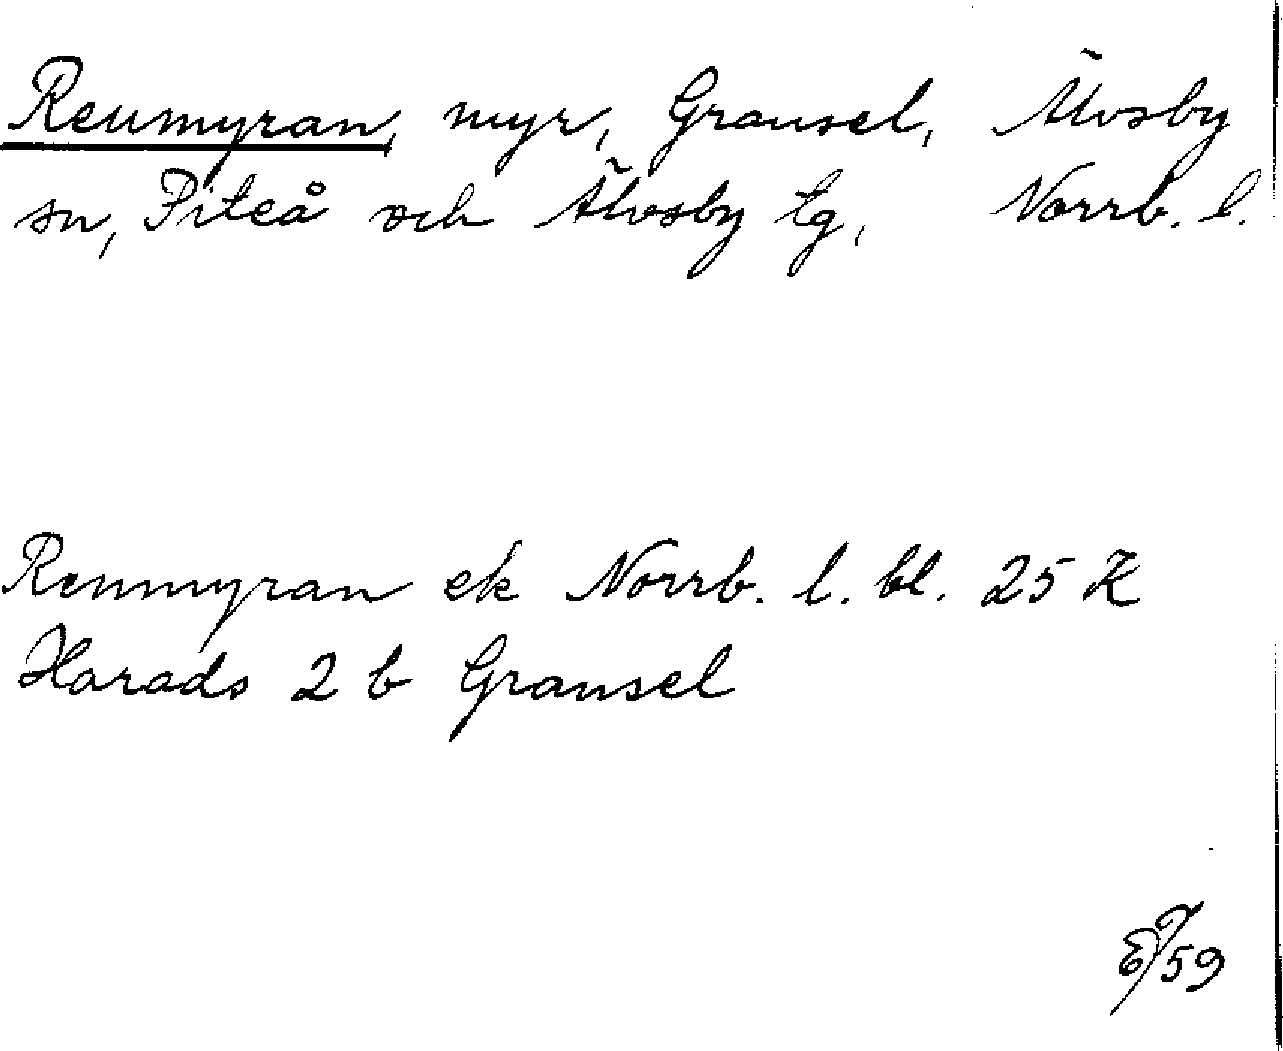 Renmyran, myr, Gransel, Älvsby
sn, Piteå och Älvsby tg, Norrb. l.
Renmyran ek Norrb. l. bl. 25 K
Harads 2 b Gransel
59